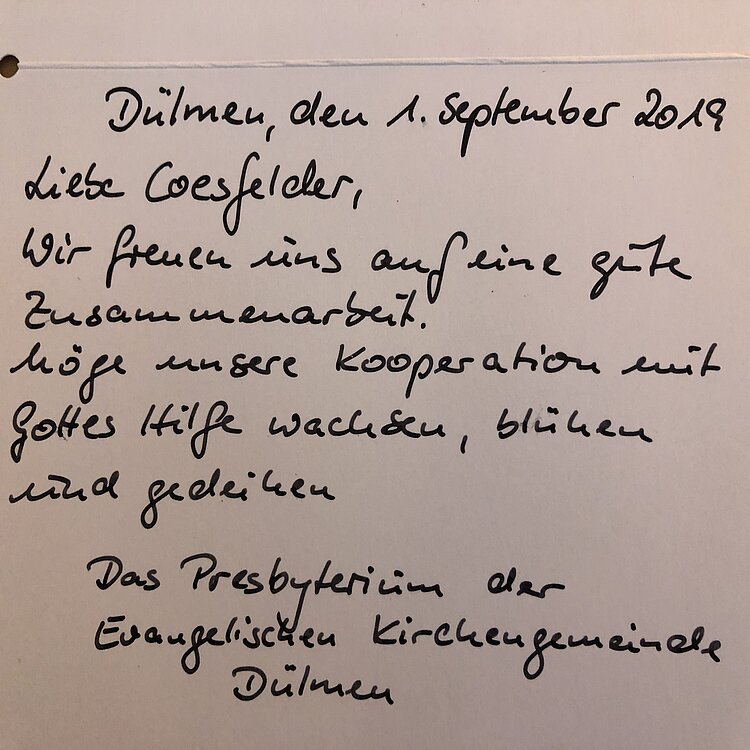 Dülmen, den 1. September 2019
Liebe Coesfelder,
Wir freuen uns auf eine gute
Zusammenarbeit.
Möge unsere Kooperation mit
Gottes Hilfe wachsen, blühen
und gedeihen
Das Presbyterium der
Evangelischen Kirchengemeinde
Dülmen